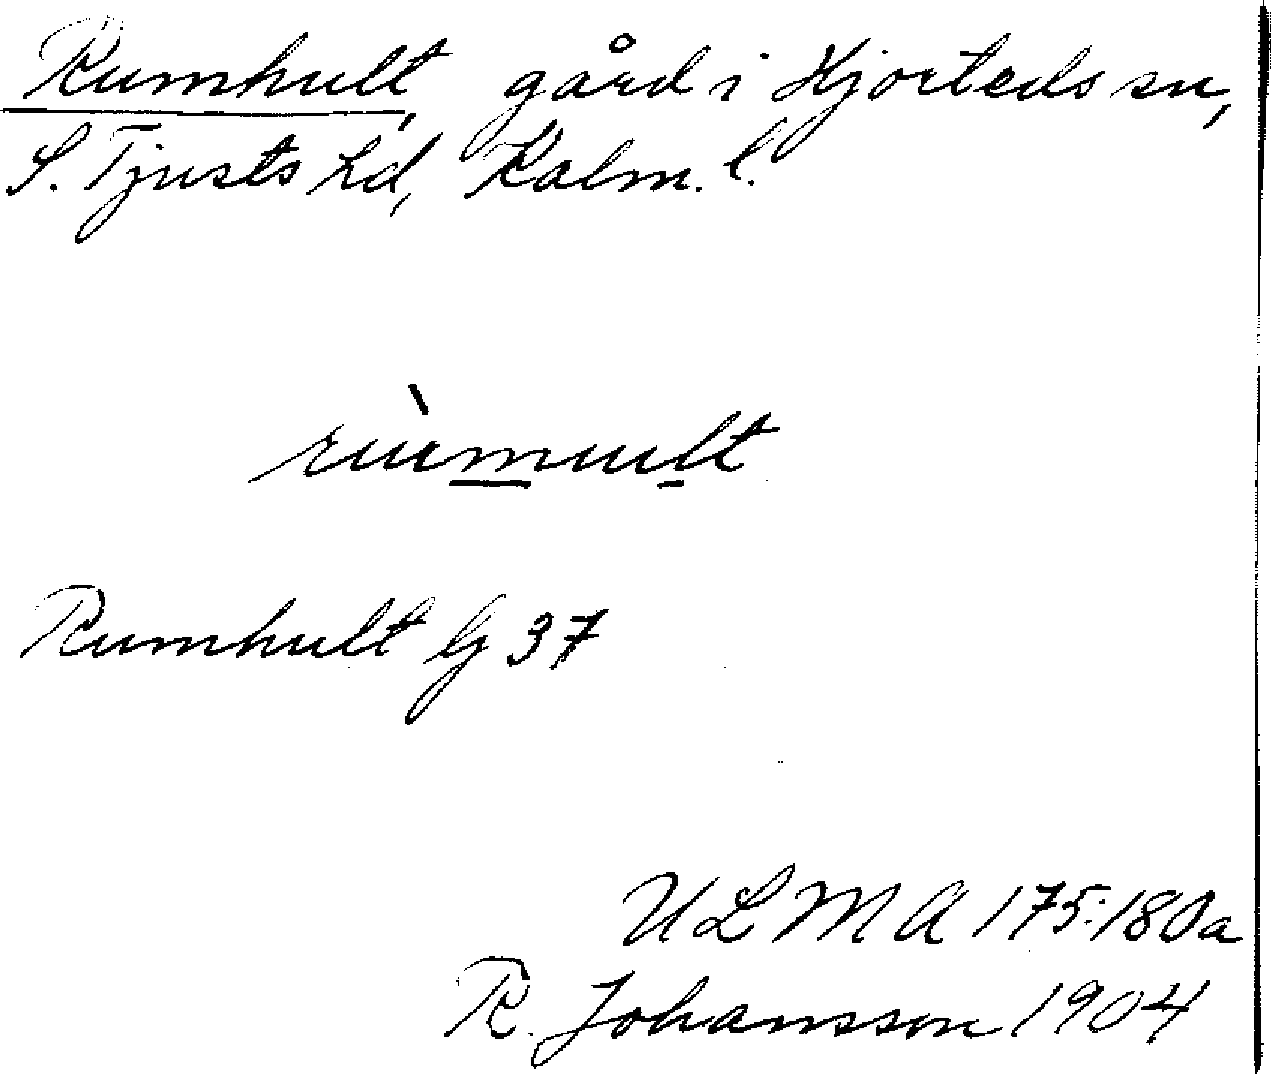 Rumhult, gård i Hjorteds sn,
S. Tjusts hd, Kalm. l.
rùmult
Rumhult G 37
ULMA 175:180a
R. Johansson 1904